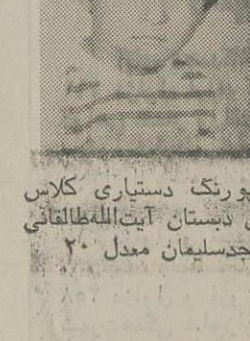 پورنگ دستیاری کلاس
دبستان آیت‌الله‌طالقانی
جدسلیمان معدل ۲۰